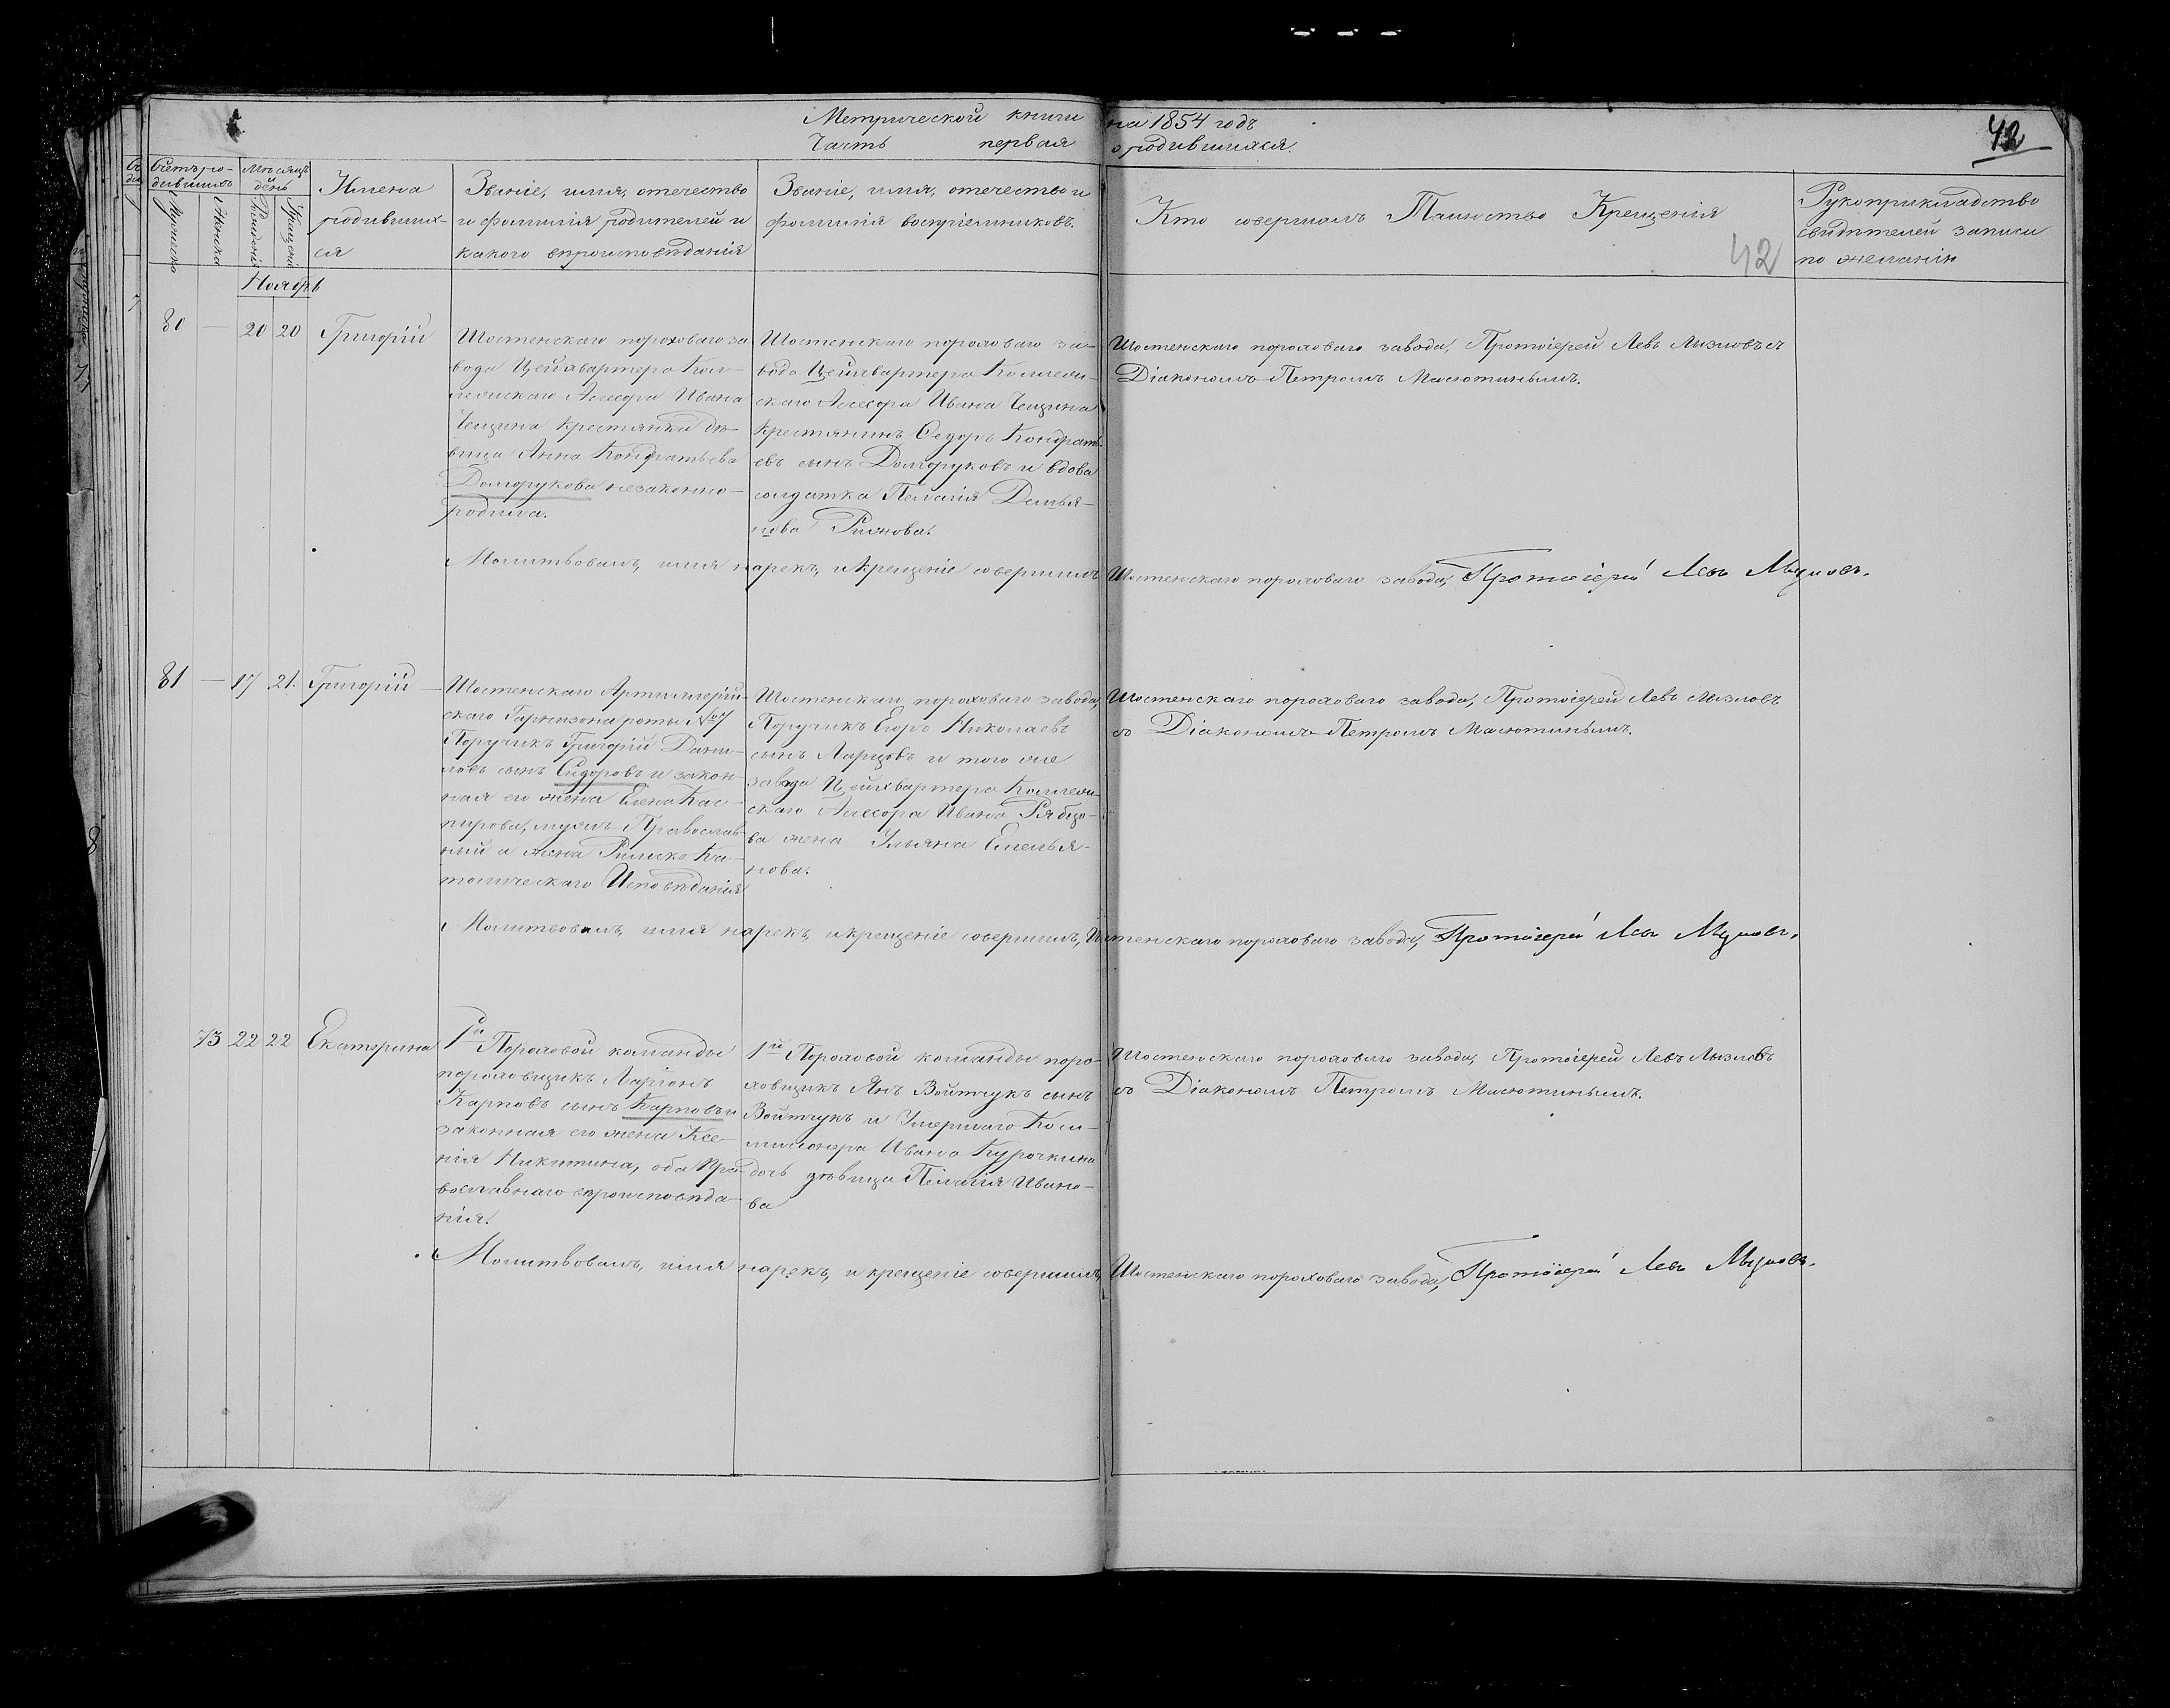 Метрической книги на 1854 годъ
Часть первая о родившихся.
42
Счетъ ро-
дившихъ
Мужеска
Женска
Мѣсяцъ
и
день
Рожденія
Крещенія
Имена
родивших-
ся
Званіе, имя, отечество
и фамилія родителей и
какого вѣроисповѣданія
Званіе, имя, отечество и
фамилія воспріемниковъ.
Кто совершалъ Таинство Крещенія
42
Рукоприкладство
свидѣтелей записи
по желанію
Ноябрь
80 — 20 20 Григорій
Шостенскаго пороховаго за-
вода Цейхвартера Кол-
лежскаго Асесора Ивана
Чещина крестьянка дѣ-
вица Анна Кондратьева
Долгорукова незаконно-
родила.
Шостенскаго пороховаго за-
вода Цейхвартера Коллеж-
скаго Асесора Ивана Чещина
крестьянинъ Сидоръ Кондрать-
евъ сынъ Долгоруковъ и вдова
солдатка Пелагія Демья-
нова Рыжова.
Шостенскаго пороховаго завода, Протоіерей Левъ Лызловъ съ
Діакономъ Петромъ Масютинымъ.
Молитвовалъ, имя нарекъ, и крещеніе совершилъ Шостенскаго пороховаго завода, Протоіерей Левъ Лызловъ.
81 — 17 21. Григорій
Шостенскаго Артиллерій-
скаго Гарнизона роты №7
Поручикъ Григорій Дани-
ловъ сынъ Сидоровъ и закон-
ная его жена Елена Кас-
пирова, мужъ Православ-
ный а жена Римско Ка-
толическаго Исповѣданія
Шостенскаго пороховаго завода,
Поручикъ Егоръ Николаевъ
сынъ Ларіовъ и того же
завода Цейхвартера Коллеж-
скаго Асесора Ивана Рябцо-
ва жена Ульяна Емелья-
нова.
Шостенскаго пороховаго завода, Протоіерей Левъ Лызловъ
съ Діакономъ Петромъ Масютинымъ.
Молитвовалъ, имя нарекъ, и крещеніе совершилъ, Шостенскаго пороховаго завода, Протоіерей Левъ Лызловъ.
73 22 22 Екатерина
1й Пороховой команды
пороховщикъ Ларіонъ
Карповъ сынъ Карповъ и
законная его жена Ксе-
нія Никитина, оба Пра-
вославнаго вѣроисповѣда-
нія.
1й Пороховой команды поро-
ховщикъ Янъ Войтчукъ сынъ
Войтчукъ и Умершаго Ком-
мисіонера Ивана Курочкина
дочь дѣвица Пелагія Ивано-
ва
Шостенскаго пороховаго завода, Протоіерей Левъ Лызловъ
съ Діакономъ Петромъ Масютинымъ.
Молитвовалъ, имя нарекъ, и крещеніе совершилъ, Шостенскаго пороховаго завода, Протоіерей Левъ Лызловъ.